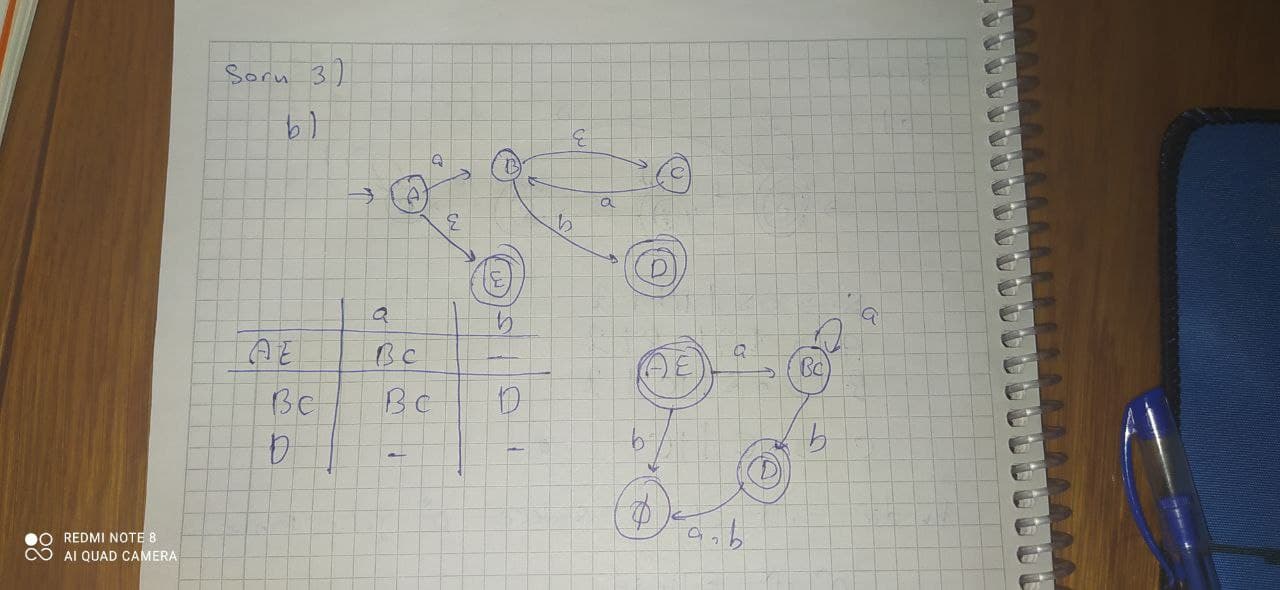 Soru 3)
b)
a
ε
B
C
A
a
ε
b
E
D
a b
AE BC —
BC BC D
D - -
AE
a
BC
a
b
b
D
ϕ
a,b
REDMI NOTE 8
AI QUAD CAMERA